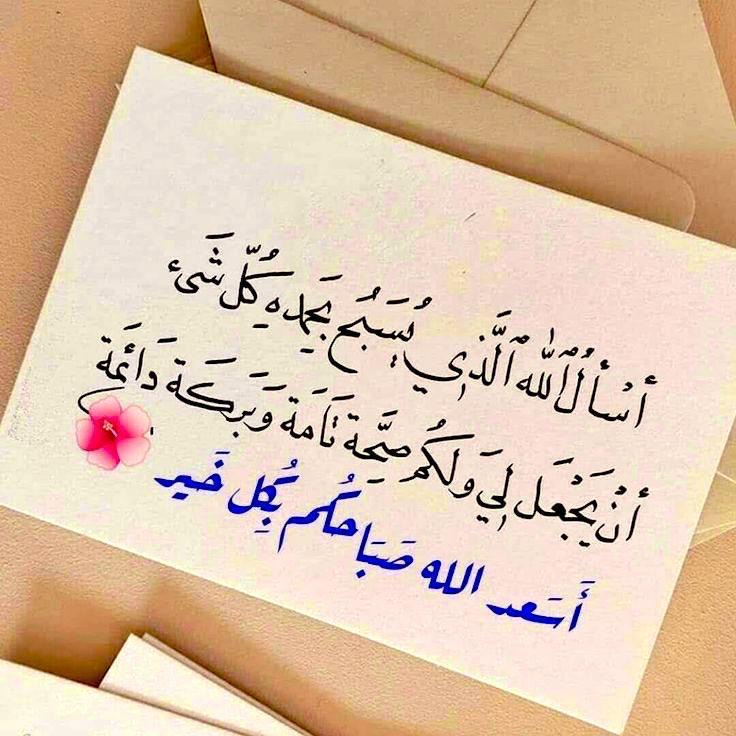 أسألُ ٱللّٰه ٱلَّذِي يُسَبِّح بِحَمْدِهِ كُلّ شَيء
أنْ يَجْعَل لِي وَلَكُم صِحَّة تَامَة وَبَرَكَة دَائمَة
أَسَعد الله صَبَاحكُم بِكُل خَير